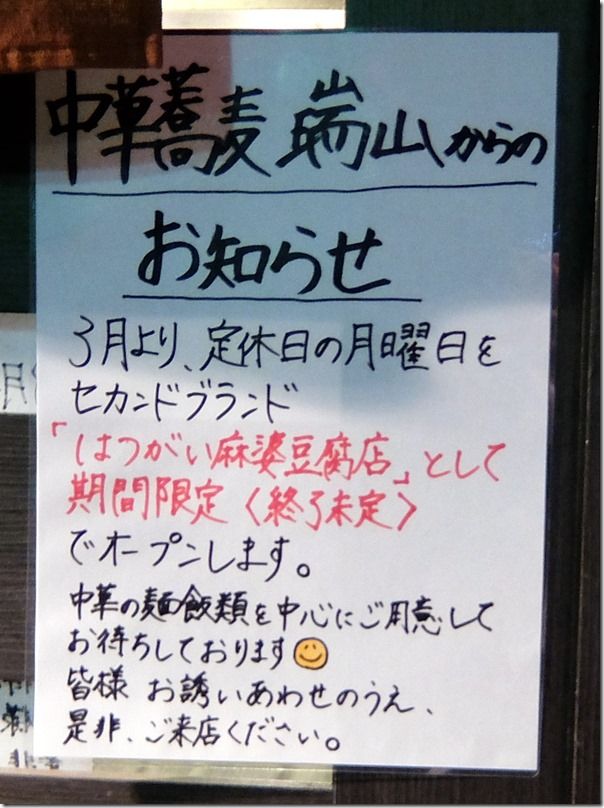 中華蕎麦 瑞山からの
お知らせ
3月より、定休日の月曜日を
セカンドブランド
「はつがい麻婆豆腐店」として
期間限定〈終了未定〉
でオープンします。
中華の麺飯類を中心にご用意して
お待ちしております
皆様 お誘いあわせのうえ、
是非、ご来店ください。
月